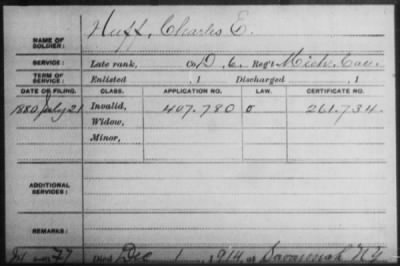 NAME OF SOLDIER: Huff, Charles E.
SERVICE: Late rank, Co. D, 6, Reg't Mich. Cav.
TERM OF SERVICE: Enlisted , 1 Discharged , 1
DATE OF FILING. CLASS. APPLICATION NO. LAW. CERTIFICATE NO.
1880 July 21 Invalid, 407.780 261.734.
Widow,
Minor,
ADDITIONAL SERVICES:
REMARKS:
77 Died Dec 1, 1914, at Savannah N.Y.